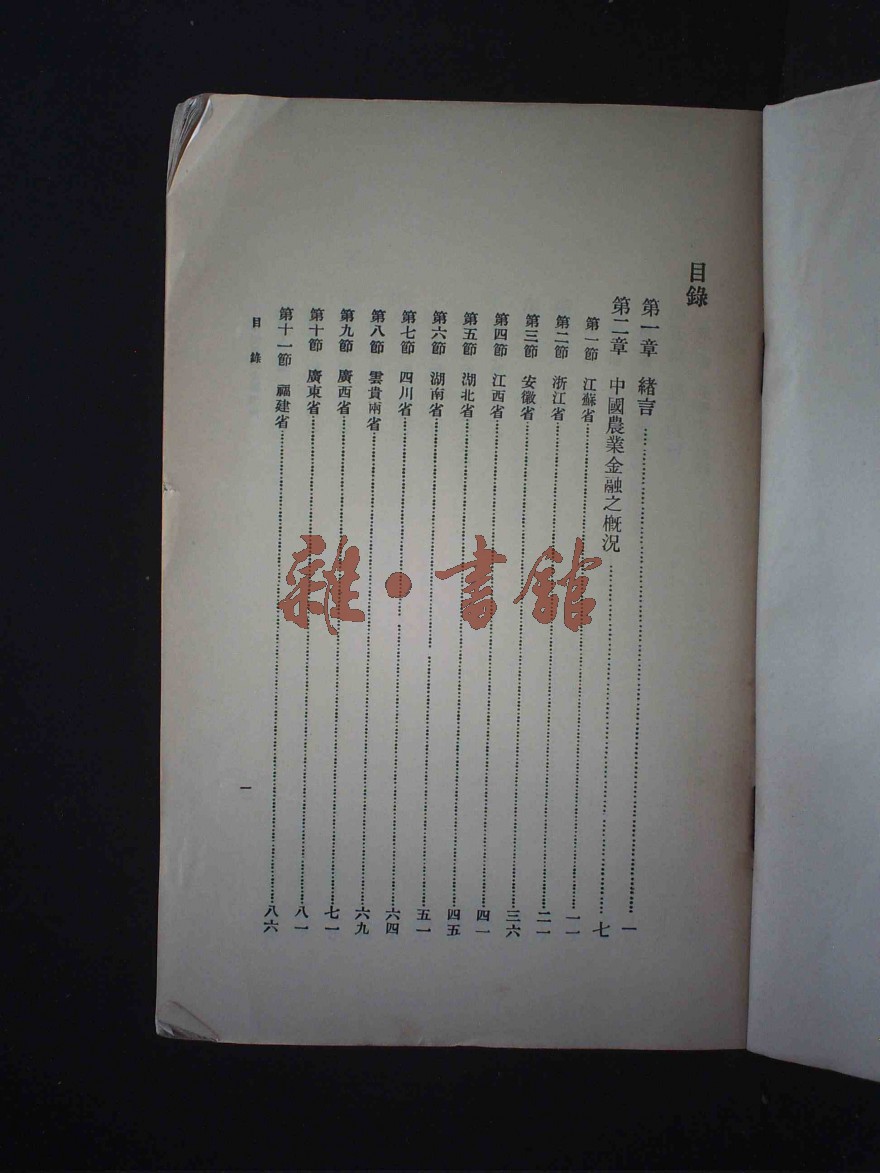 目錄
第一章 緒言……一
第二章 中國農業金融之概況……七
第一節 江蘇省……一一
第二節 浙江省……二一
第三節 安徽省……三六
第四節 江西省……四一
第五節 湖北省……四五
第六節 湖南省……五一
第七節 四川省……六四
第八節 雲貴兩省……六九
第九節 廣西省……七一
第十節 廣東省……八一
第十一節 福建省……八六
目錄 一
雜·書館